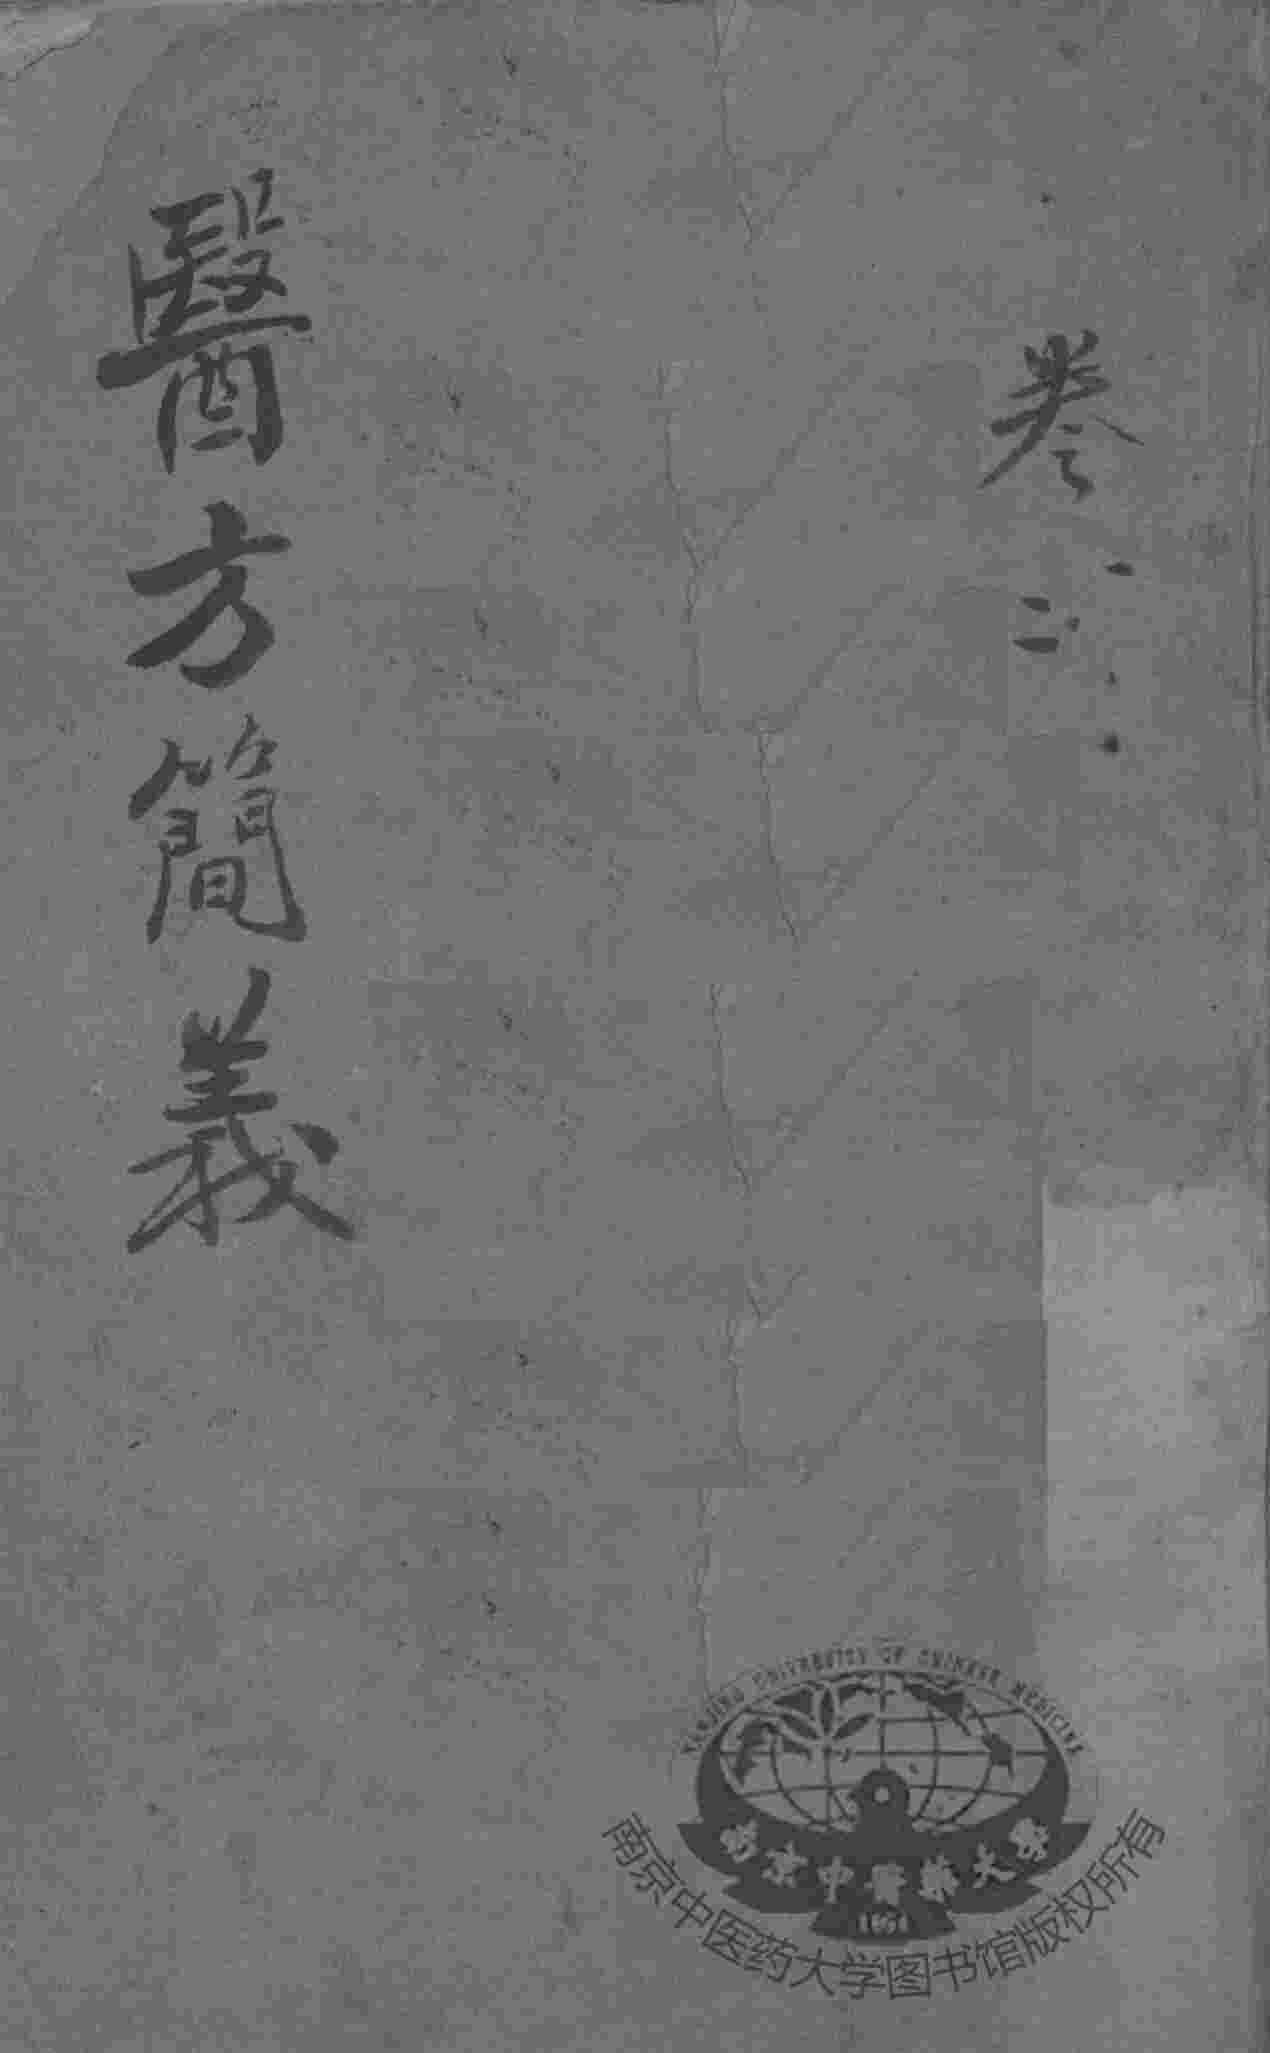 卷二
醫方簡義
NANJING UNIVERSITY OF CHINESE MEDICINE
南京中醫藥大學
1954
南京中医药大学图书馆版权所有